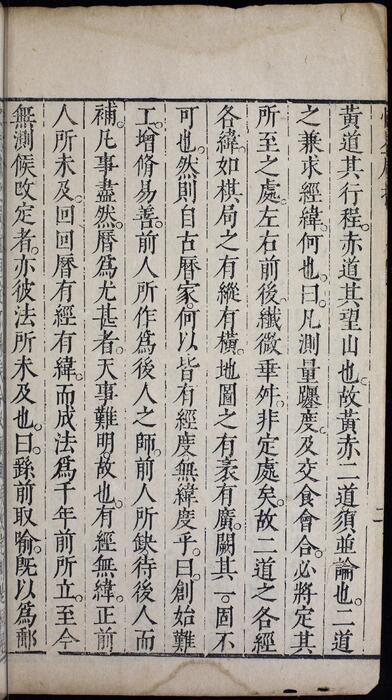 黃道其行程。赤道其望山也。故黃赤二道須並論也。二道
之兼求經緯。何也。曰。凡測量躔度。及交食會合。必將定其
所至之處。左右前後。纖微乖舛。非定處矣。故二道之各經
各緯。如棋局之有縱有橫。地圖之有袤有廣。闕其一。固不
可也。然則自古曆家。何以皆有經度無緯度乎。曰。創始難
工。增脩易善。前人所作。為後人之師。前人所缺。待後人而
補。凡事盡然。曆為尤甚者。天事難明故也。有經無緯。正前
人所未及。回回曆有經有緯。而成法為千年前所立。至今
無測候改定者。亦彼法所未及也。曰。繇前取喻。既以為郵